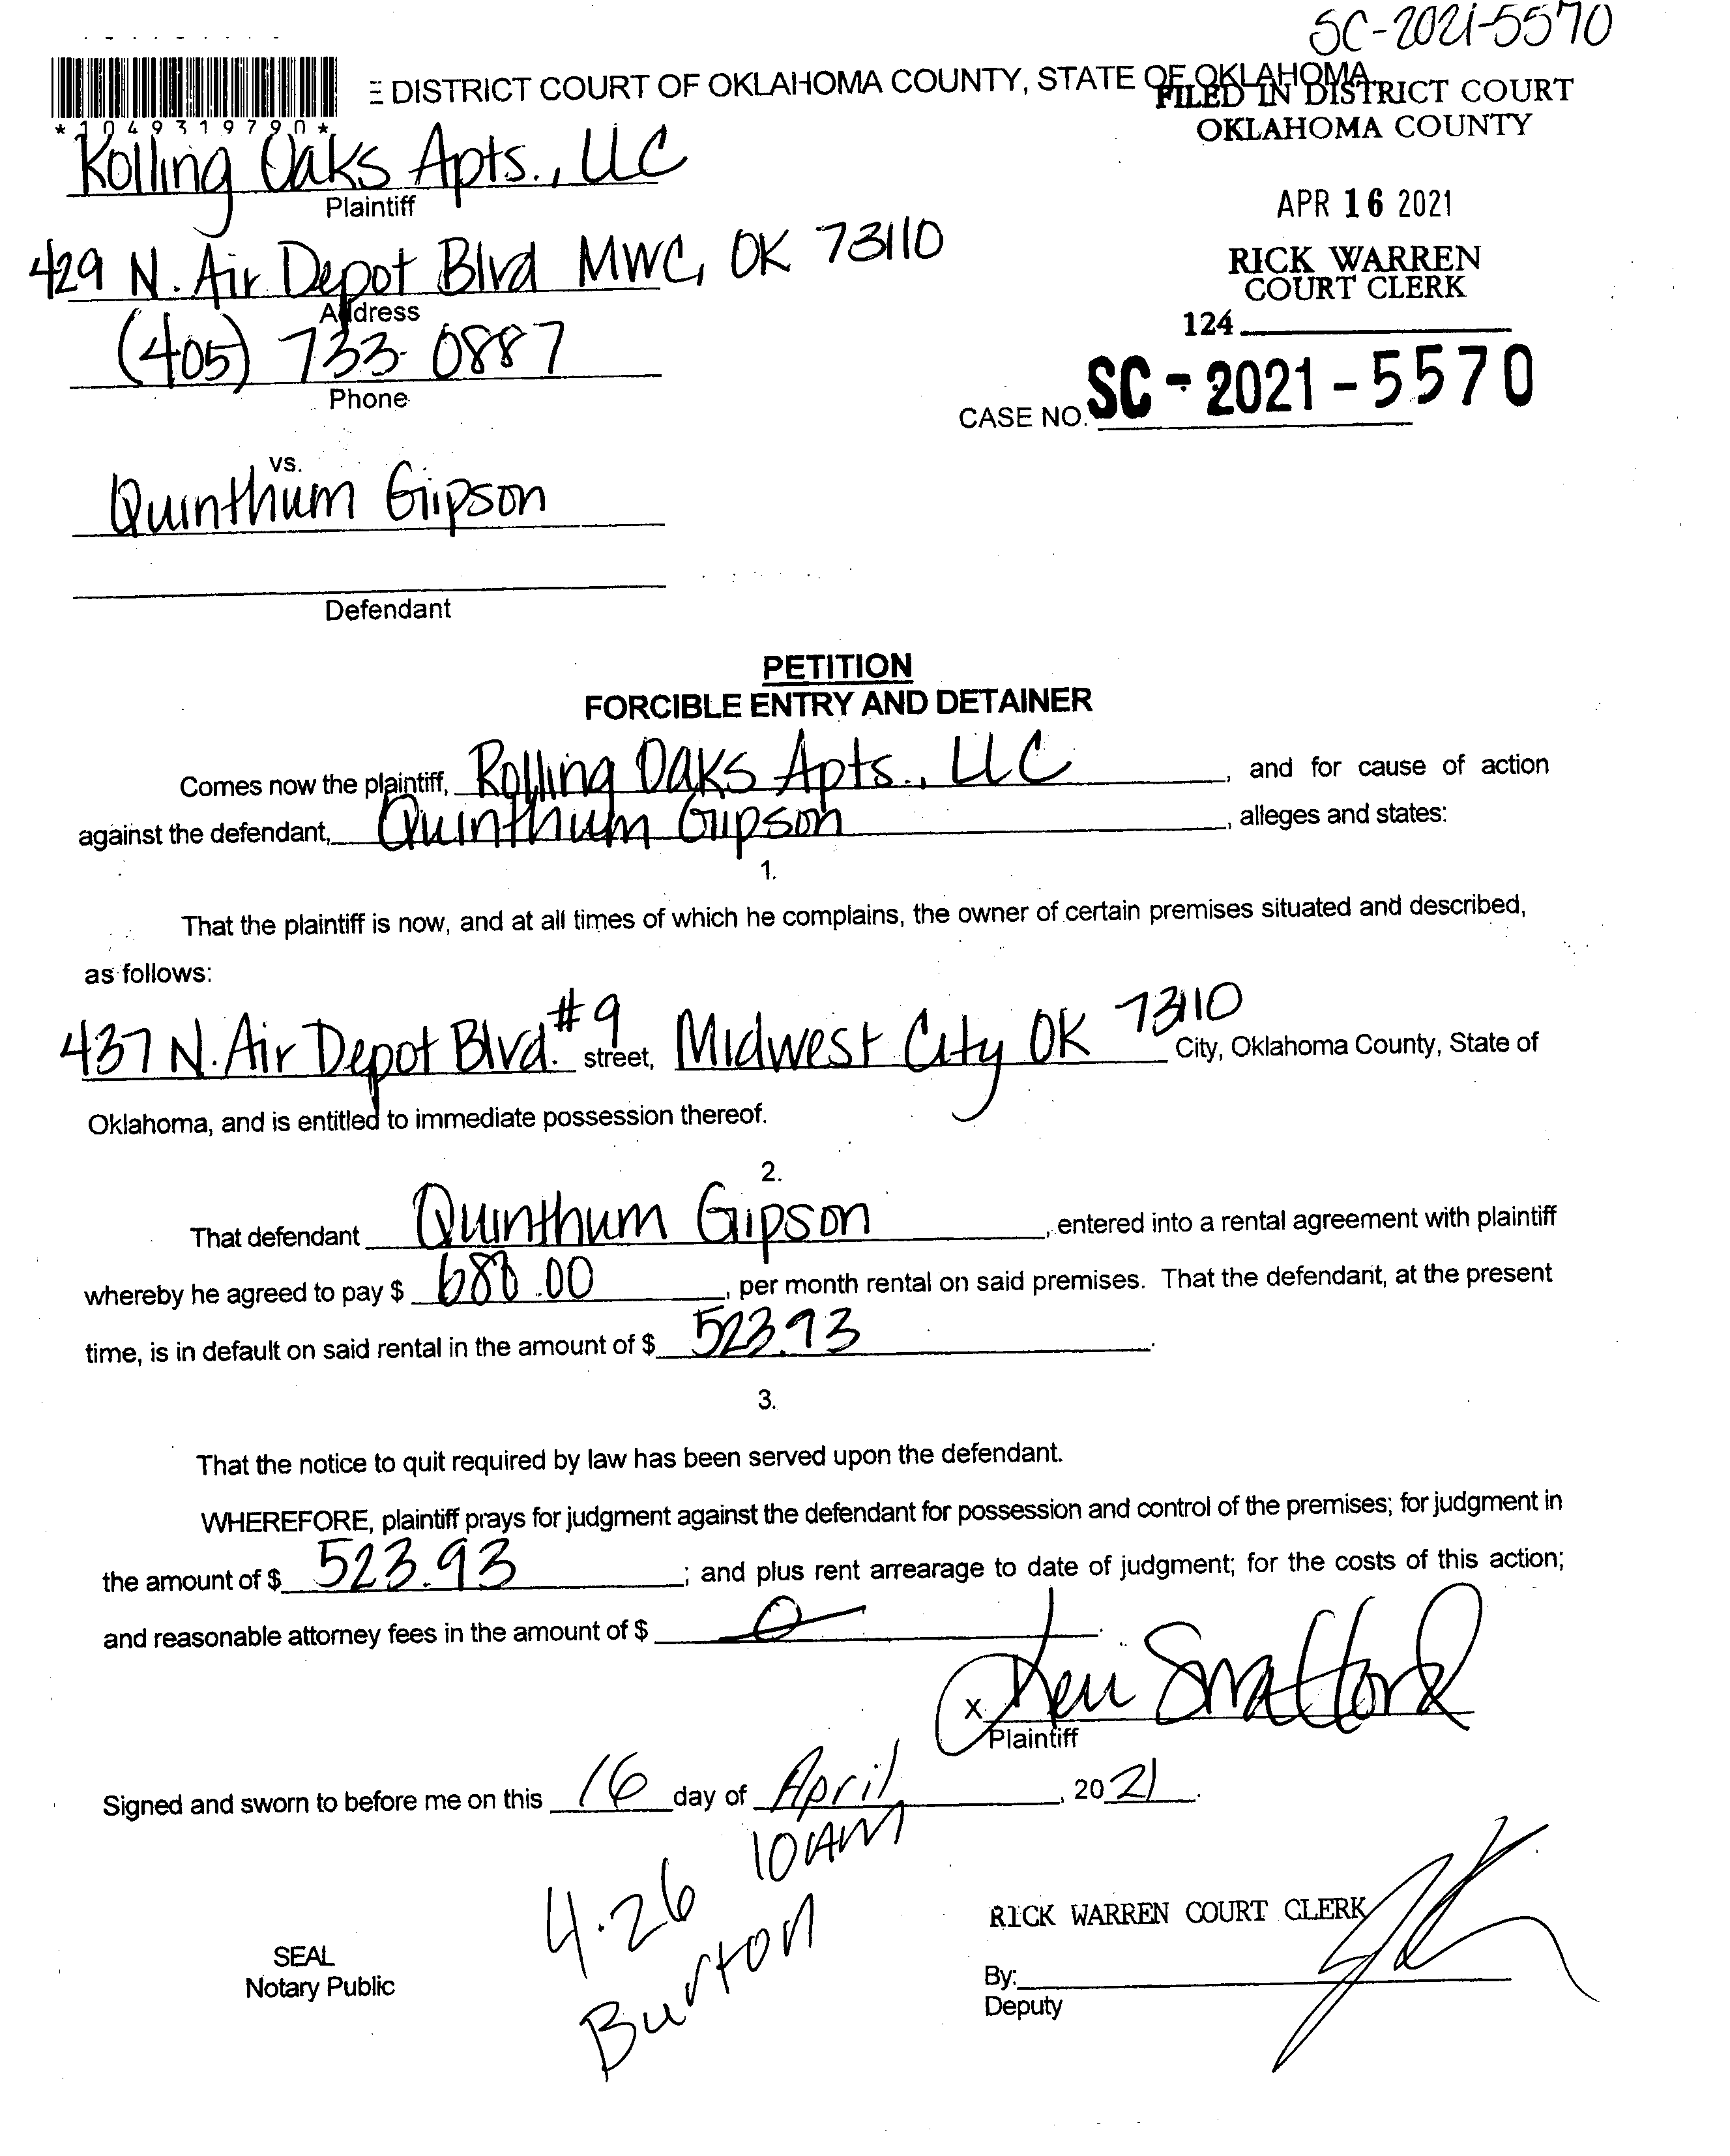 SC-2021-5570
DISTRICT COURT OF OKLAHOMA COUNTY, STATE OF OKLAHOMA
FILED IN DISTRICT COURT
OKLAHOMA COUNTY
*1049319790*
Rolling Oaks Apts., LLC
Plaintiff
APR 16 2021
429 N. Air Depot Blvd MWC, OK 73110
Address
RICK WARREN
COURT CLERK
124
(405) 733-0887
Phone
CASE NO. SC-2021-5570
vs.
Quinthum Gipson
Defendant
PETITION
FORCIBLE ENTRY AND DETAINER
Comes now the plaintiff, Rolling Oaks Apts., LLC, and for cause of action
against the defendant, Quinthum Gipson, alleges and states:
1.
That the plaintiff is now, and at all times of which he complains, the owner of certain premises situated and described,
as follows:
437 N. Air Depot Blvd. #9 street, Midwest City OK 73110 City, Oklahoma County, State of
Oklahoma, and is entitled to immediate possession thereof.
2.
That defendant Quinthum Gipson, entered into a rental agreement with plaintiff
whereby he agreed to pay $ .00, per month rental on said premises. That the defendant, at the present
time, is in default on said rental in the amount of $ 523.93.
3.
That the notice to quit required by law has been served upon the defendant.
WHEREFORE, plaintiff prays for judgment against the defendant for possession and control of the premises; for judgment in
the amount of $ 523.93; and plus rent arrearage to date of judgment; for the costs of this action;
and reasonable attorney fees in the amount of $ 0.
x
Plaintiff
Signed and sworn to before me on this 16 day of April, 2021.
4.26 10AM
Burton
RICK WARREN COURT CLERK
SEAL
Notary Public
By:
Deputy